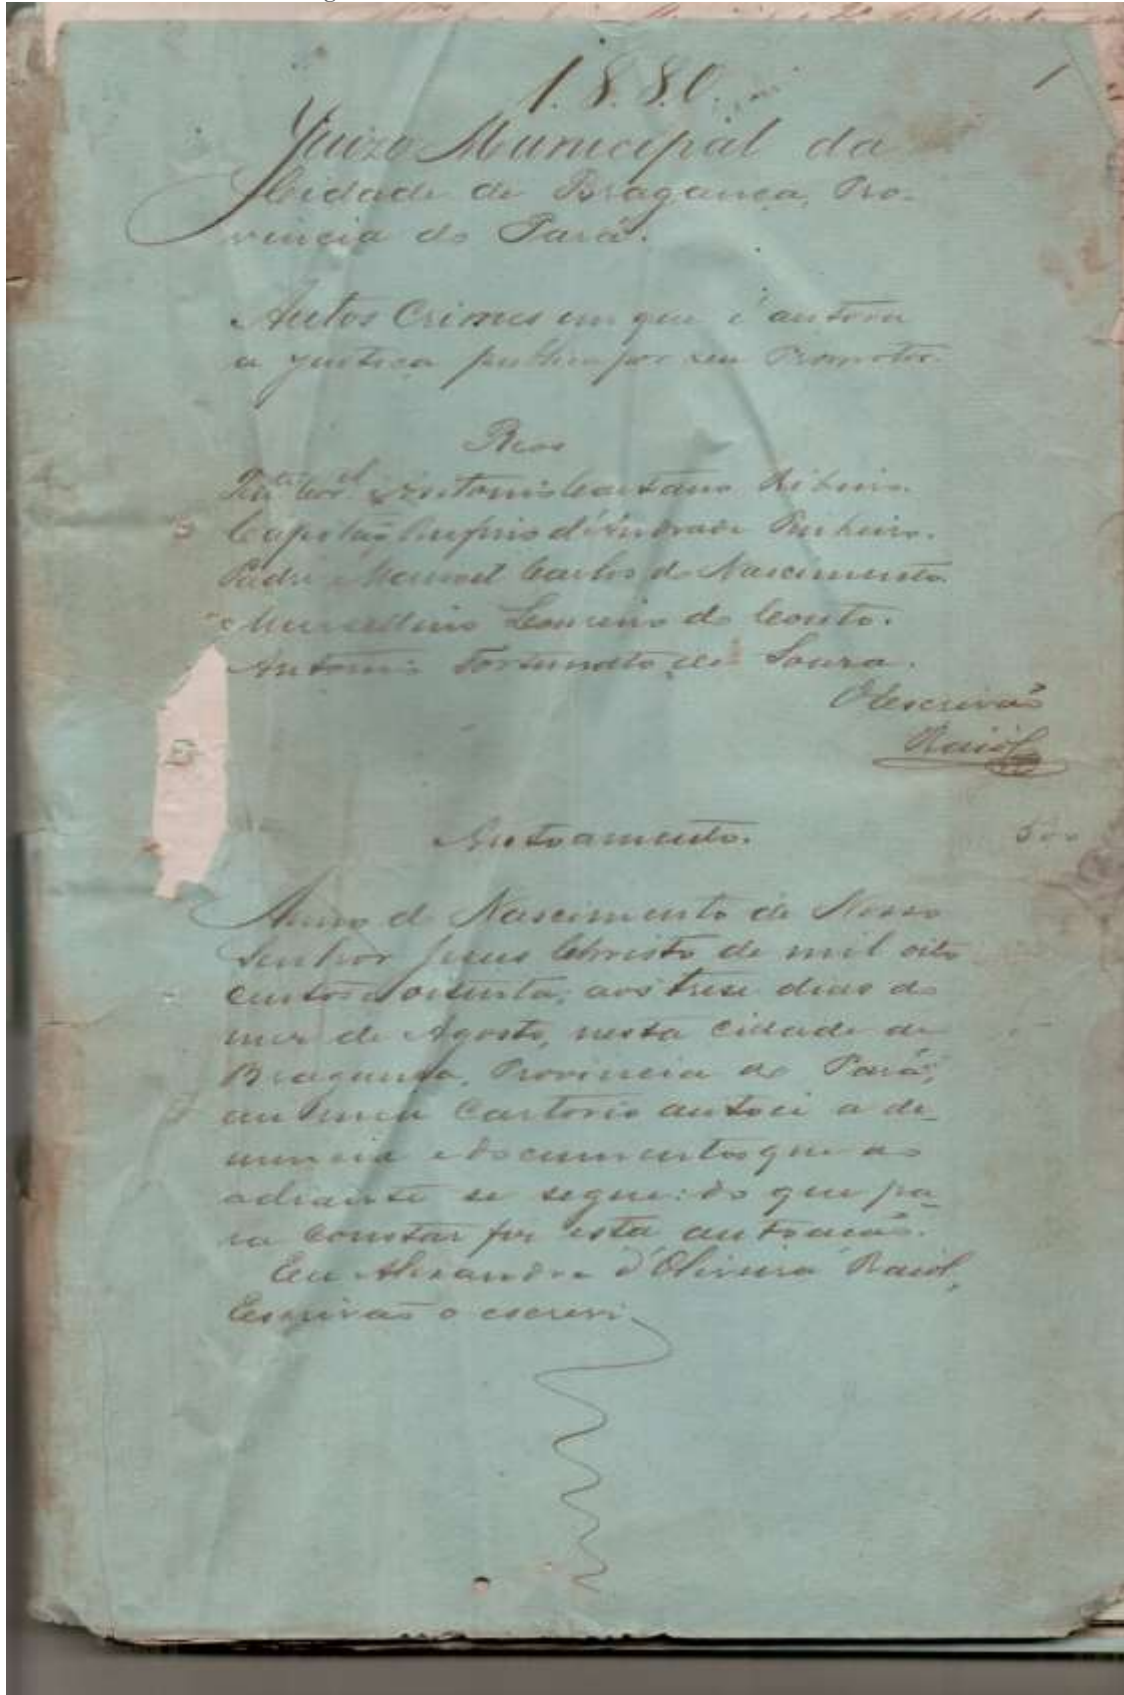 1.8.8.0.
1
Juizo Municipal da
Cidade de Bragança, Pro-
vincia do Pará.
Autos Crimes em que é autora
a justiça publica por seu Promotor.
Reos
Tenᵗᵉ Corᵉˡ Antonio Caetano Ribeiro.
Capitaõ Rufino d'Andrade Pinheiro.
Padre Manoel Carlos do Nascimento.
Marcellino Loureiro do Couto.
Antonio Fortunato de Souza.
O Escrivaõ
Raiol
Autoamento.
500
Anno do Nascimento de Nosso
Senhor Jesus Christo de mil oito
centos e oitenta, aos trese dias do
mez de Agosto, nesta Cidade de
Bragança, Provincia do Pará,
em meu Cartorio autoei a de-
nuncia e documentos que ao
adiante se segue: do que pa-
ra constar fiz esta autuacaõ.
Eu Alexandre d'Oliveira Raiol,
Escrivaõ o escrevi